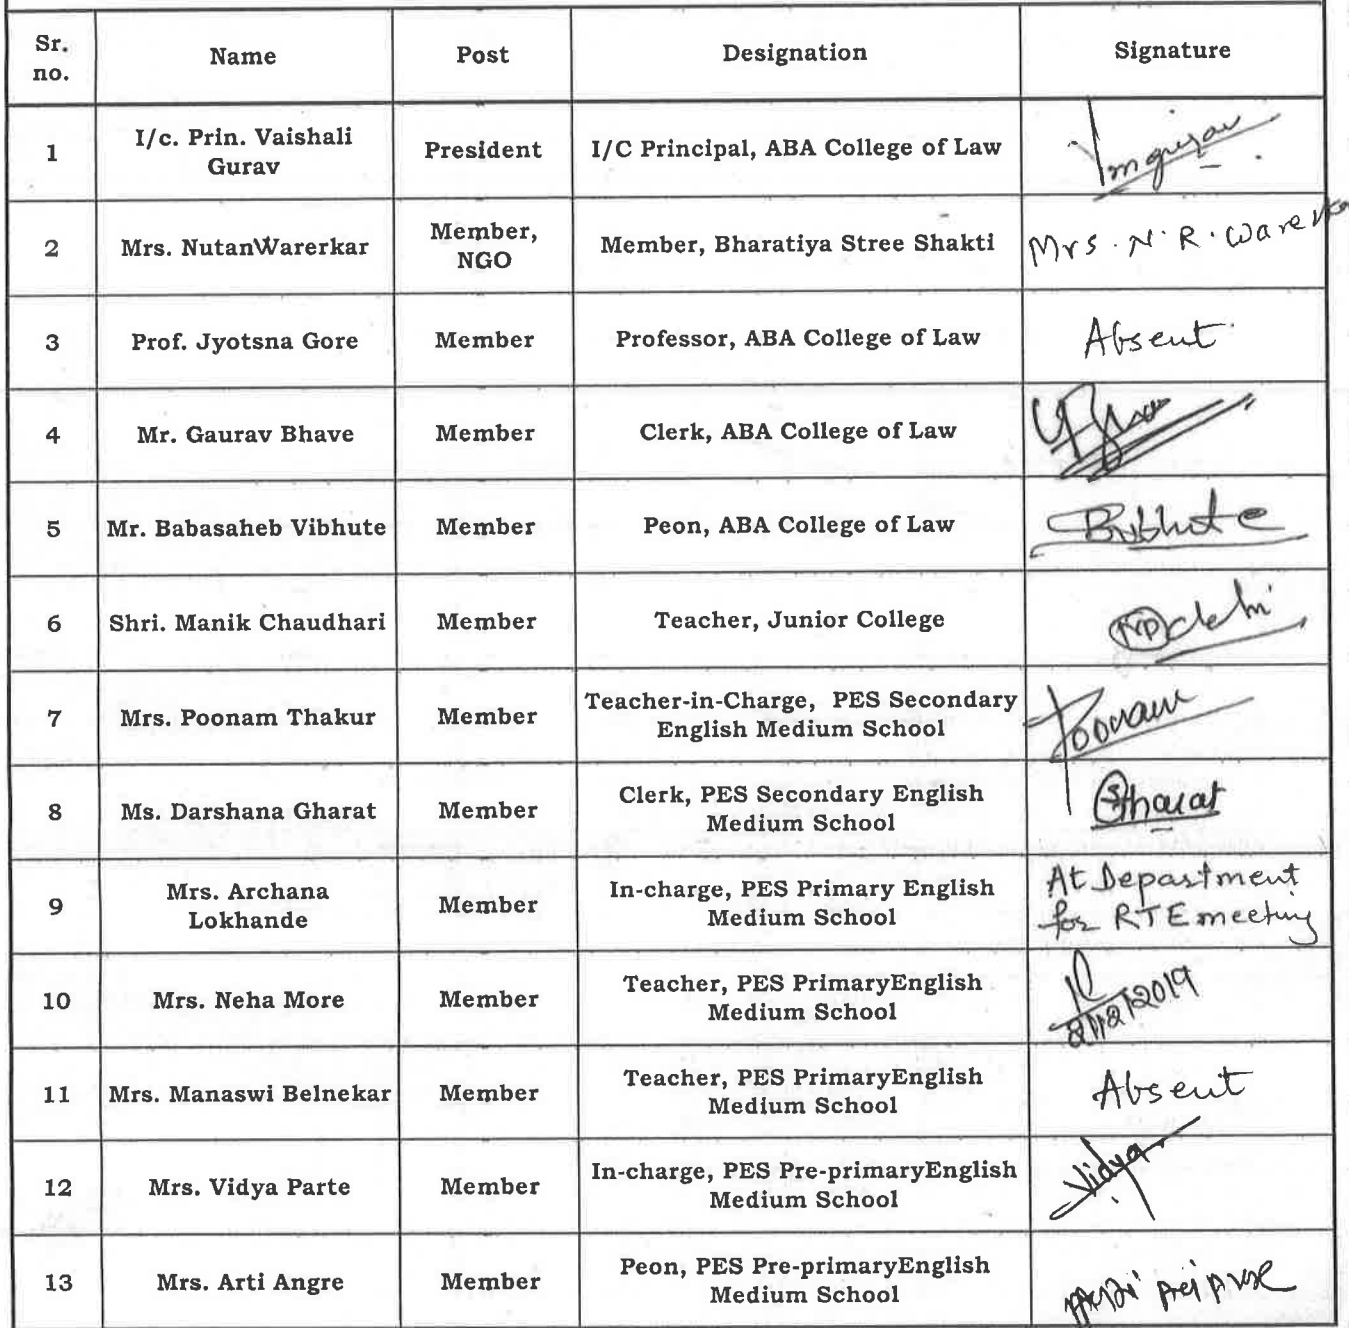 Sr. no. Name Post Designation Signature
1 I/c. Prin. Vaishali Gurav President I/C Principal, ABA College of Law
2 Mrs. NutanWarerkar Member, NGO Member, Bharatiya Stree Shakti Mrs. N. R. Warerkar
3 Prof. Jyotsna Gore Member Professor, ABA College of Law Absent
4 Mr. Gaurav Bhave Member Clerk, ABA College of Law
5 Mr. Babasaheb Vibhute Member Peon, ABA College of Law Bvibhute
6 Shri. Manik Chaudhari Member Teacher, Junior College
7 Mrs. Poonam Thakur Member Teacher-in-Charge, PES Secondary English Medium School Poonam
8 Ms. Darshana Gharat Member Clerk, PES Secondary English Medium School Gharat
9 Mrs. Archana Lokhande Member In-charge, PES Primary English Medium School At Department for RTE meeting
10 Mrs. Neha More Member Teacher, PES PrimaryEnglish Medium School
11 Mrs. Manaswi Belnekar Member Teacher, PES PrimaryEnglish Medium School Absent
12 Mrs. Vidya Parte Member In-charge, PES Pre-primaryEnglish Medium School Vidya
13 Mrs. Arti Angre Member Peon, PES Pre-primaryEnglish Medium School